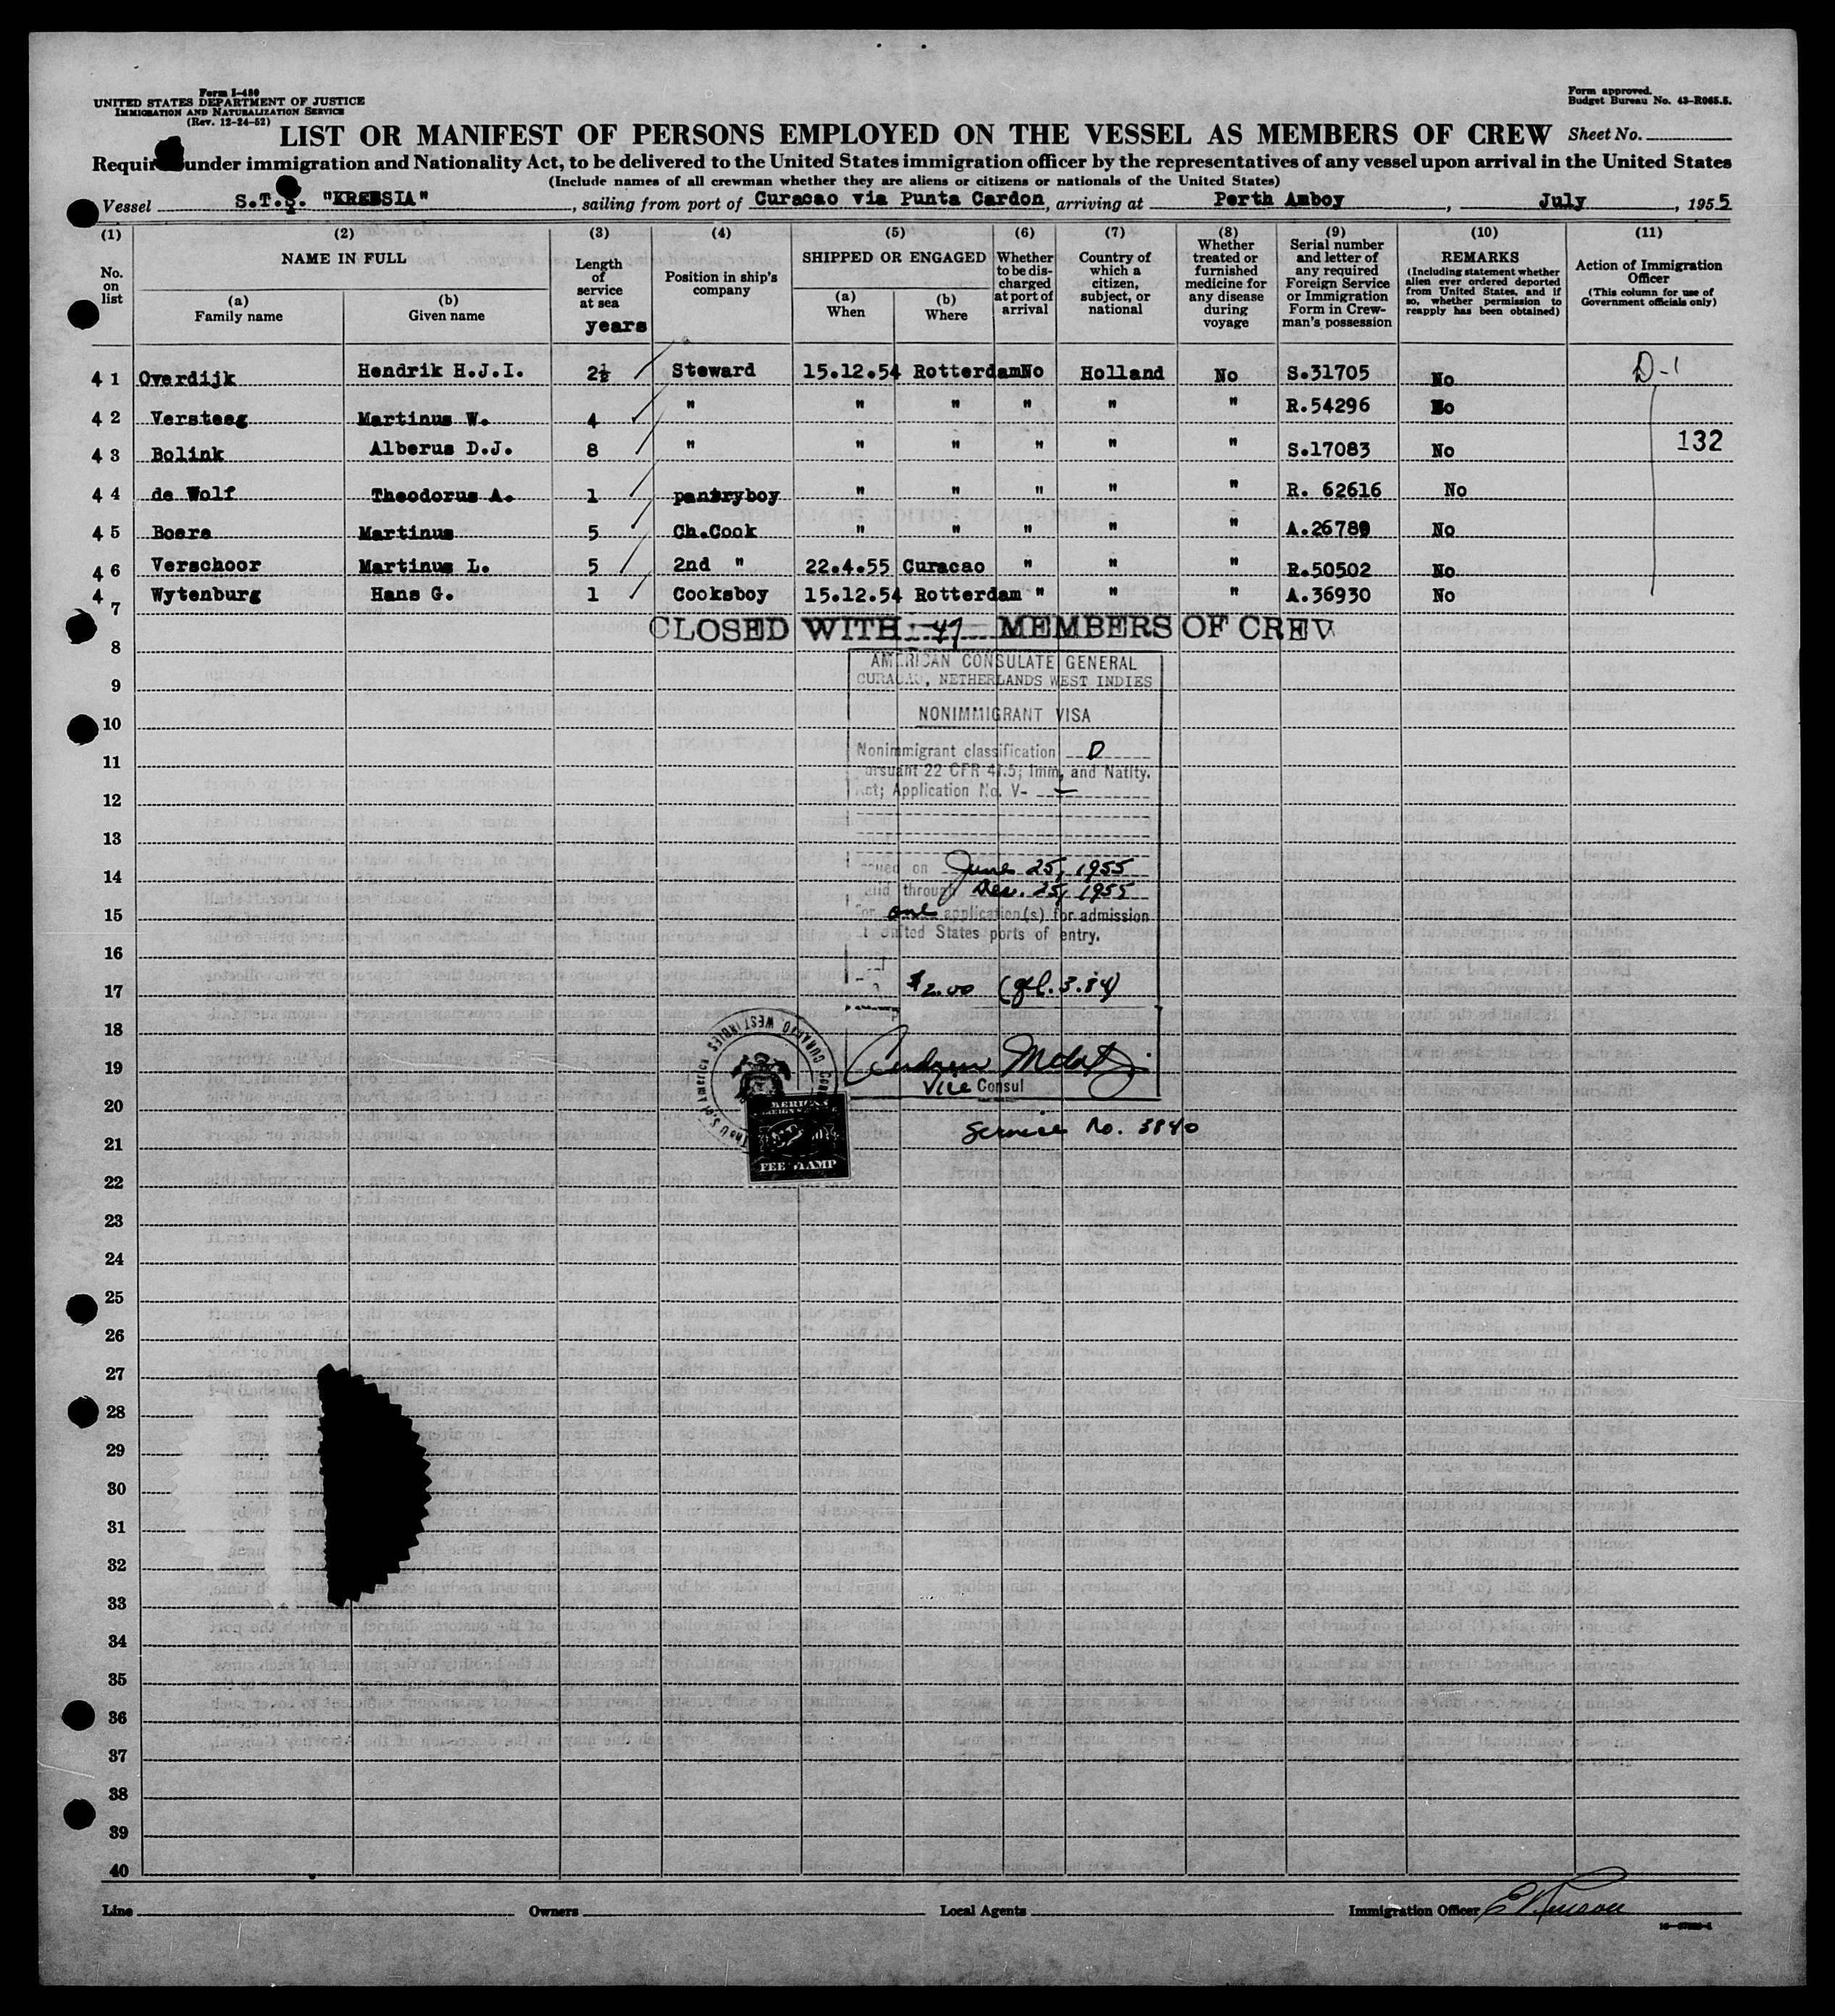 Form I-480
UNITED STATES DEPARTMENT OF JUSTICE
IMMIGRATION AND NATURALIZATION SERVICE
(Rev. 12-24-52)
Form approved.
Budget Bureau No. 43-R065.5.
LIST OR MANIFEST OF PERSONS EMPLOYED ON THE VESSEL AS MEMBERS OF CREW Sheet No.
under immigration and Nationality Act, to be delivered to the United States immigration officer by the representatives of any vessel upon arrival in the United States
(Include names of all crewman whether they are aliens or citizens or nationals of the United States)
Vessel S.T.S. "KREBSIA", sailing from port of Curacao via Punta Cardon, arriving at Perth Amboy, July, 1955
(1) (2) (3) (4) (5) (6) (7) (8) (9) (10) (11)
No. on list
NAME IN FULL
(a) Family name
(b) Given name
Length of service at sea
years
Position in ship's company
SHIPPED OR ENGAGED
(a) When
(b) Where
Whether to be discharged at port of arrival
Country of which a citizen, subject, or national
Whether treated or furnished medicine for any disease during voyage
Serial number and letter of any required Foreign Service or Immigration Form in Crewman's possession
REMARKS
(Including statement whether alien ever ordered deported from United States, and if so, whether permission to reapply has been obtained)
Action of Immigration Officer
(This column for use of Government officials only)
4 1 Overdijk Hendrik H.J.I. 2½ Steward 15.12.54 Rotterdam No Holland No S.31705 No D-1
4 2 Versteeg Martinus W. 4 " " " " " " R.54296 No
4 3 Bolink Alberus D.J. 8 " " " " " " S.17083 No 132
4 4 de Wolf Theodorus A. 1 pantryboy " " " " " R. 62616 No
4 5 Boere Martinus 5 Ch.Cook " " " " " A.26789 No
4 6 Verschoor Martinus L. 5 2nd " 22.4.55 Curacao " " " R.50502 No
4 7 Wytenburg Hans G. 1 Cooksboy 15.12.54 Rotterdam " " " A.36930 No
CLOSED WITH 47 MEMBERS OF CREW
8
AMERICAN CONSULATE GENERAL
CURACAO, NETHERLANDS WEST INDIES
9
NONIMMIGRANT VISA
10
Nonimmigrant classification D
11
pursuant 22 CFR 41.5; Imm. and Natlty.
Act; Application No. V-
12
13
Issued on June 25, 1955
14
valid through Dec. 25, 1955
15
for one application(s) for admission
at United States ports of entry.
16
17
$2.00 (gfl. 3.84)
18
19
Andrew
Vice Consul
20
Service No. 3840
21
FEE STAMP
22
23
24
25
26
27
28
29
30
31
32
33
34
35
36
37
38
39
40
Line Owners Local Agents Immigration Officer